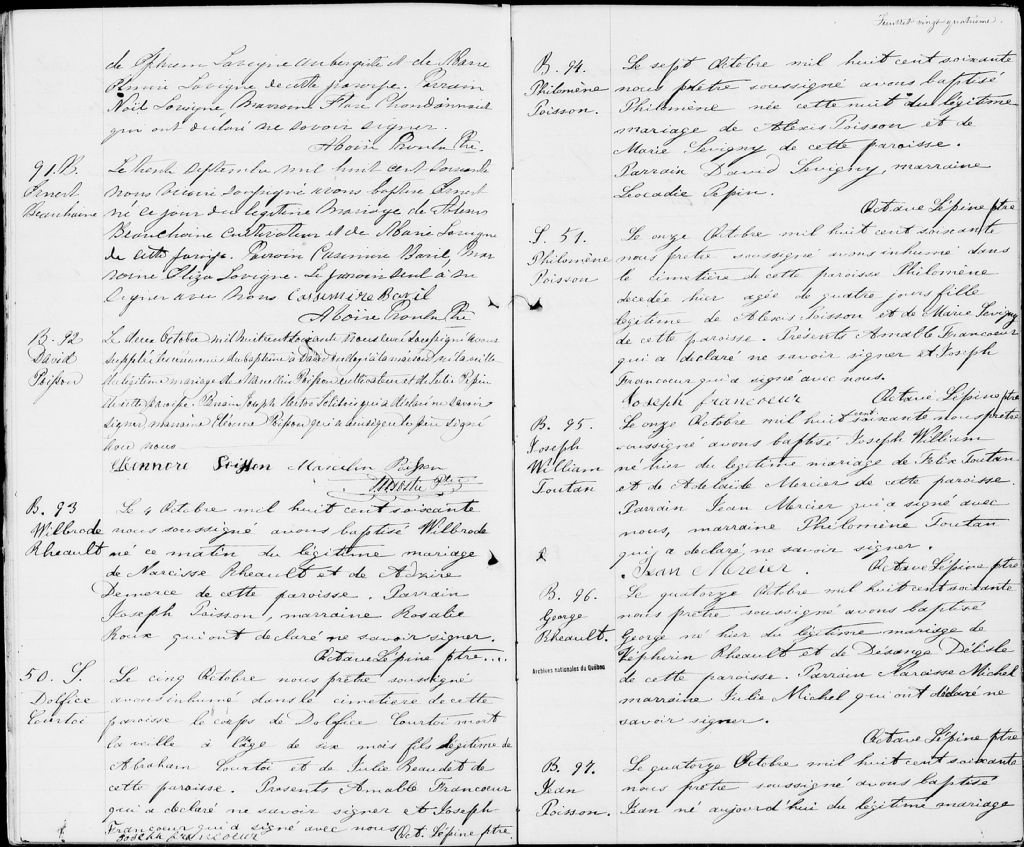 de Ephrem Lavigne aubergiste et de Marie
de cette paroisse. Parrain
Noël Lavigne Marraine Flore
qui ont déclaré ne savoir signer.
Ptre.
91. B.
Ernest
Beauchaine
Le trente Septembre mil huit cent soixante
nous vicaire soussigné avons baptisé Ernest
né ce jour du légitime mariage de
Beauchaine cultivateur et de Marie Lavigne
de cette paroisse. Parrain Casimire Baril, Mar
raine Eliza Lavigne. Le parrain seul a su
signer avec nous Cassimire Baril
Ptre
B. 92
David
Poisson
Le deux Octobre mil huit cent soixante nous Curé soussigné avons
supplée les cérémonies du baptême à David ondoyé à la maison, né la veille
du légitime mariage de Marcellin Poisson cultivateur et de Julie Pepin
de cette paroisse. Parrain Joseph qui a déclaré ne savoir
signer, marraine Poisson qui a ainsi que le père signé
avec nous
Eleennore Poisson Marcelin Poisson
Ptre
B. 93
Wilbrode
Rheault
Le 4 Octobre mil huit cent soixante
nous soussigné avons baptisé Wilbrode
né ce matin du légitime mariage
de Narcisse Rheault et de Adzire
Demerce de cette paroisse. Parrain
Joseph Poisson, marraine Rosalie
Roux qui ont déclaré ne savoir signer.
Octave Lépine ptre...
50. S.
Dolfice
Courtoi
Le cinq Octobre nous prêtre soussigné
avons inhumé dans le cimetiere de cette
paroisse le corps de Dolfice Courtoi mort
la veille à l'âge de six mois fils légitime de
Abraham Courtoi et de Julie Beaudet de
cette paroisse. Presents Amable Francoeur
qui a déclaré ne savoir signer et Joseph
Francoeur qui a signé avec nous Oct. Lépine ptre.
Joseph francoeur
Feuillet vingt quatrième.
B. 94.
Philomène
Poisson.
Le sept Octobre mil huit cent soixante
nous prêtre soussigné avons baptisé
Philomène née cette nuit du légitime
mariage de Alexis Poisson et de
Marie Levigny de cette paroisse.
Parrain David Levigny, marraine
Leocadie Pepin.
Octave Lépine ptre
S. 51.
Philomène
Poisson
Le onze Octobre mil huit cent soixante
nous prêtre soussigné avons inhumé dans
le cimetiere de cette paroisse Philomène
decedée hier agée de quatre jours fille
legitime de Alexis Poisson et de Marie Levigny
de cette paroisse. Présents Amable Francoeur
qui a déclaré ne savoir signer et Joseph
Francoeur qui a signé avec nous.
Joseph francoeur Octave Lépine ptre
B. 95.
Joseph
William
Toutan
Le onze Octobre mil huit cent soixante nous prêtre
soussigné avons baptisé Joseph William
né hier du legitime mariage de Felix Toutan
et de Adelaide Mercier de cette paroisse.
Parrain Jean Mercier qui a signé avec
nous, marraine Philomène Toutan
qui a declaré ne savoir signer.
Jean Mercier. Octave Lépine ptre
B. 96.
George
Rheault.
Le quatorze Octobre mil huit cent soixante
nous prêtre soussigné avons baptisé
George né hier du légitime mariage de
Zéphirin Rheault et de Désange Délisle
de cette paroisse. Parrain Narcisse Michel
marraine Julie Michel qui ont déclaré ne
savoir signer.
Octave Lépine ptre
Archives nationales du Québec
B. 97.
Jean
Poisson.
Le quatorze Octobre mil huit cent soixante
nous prêtre soussigné avons baptisé
Jean né aujourd'hui du légitime mariage